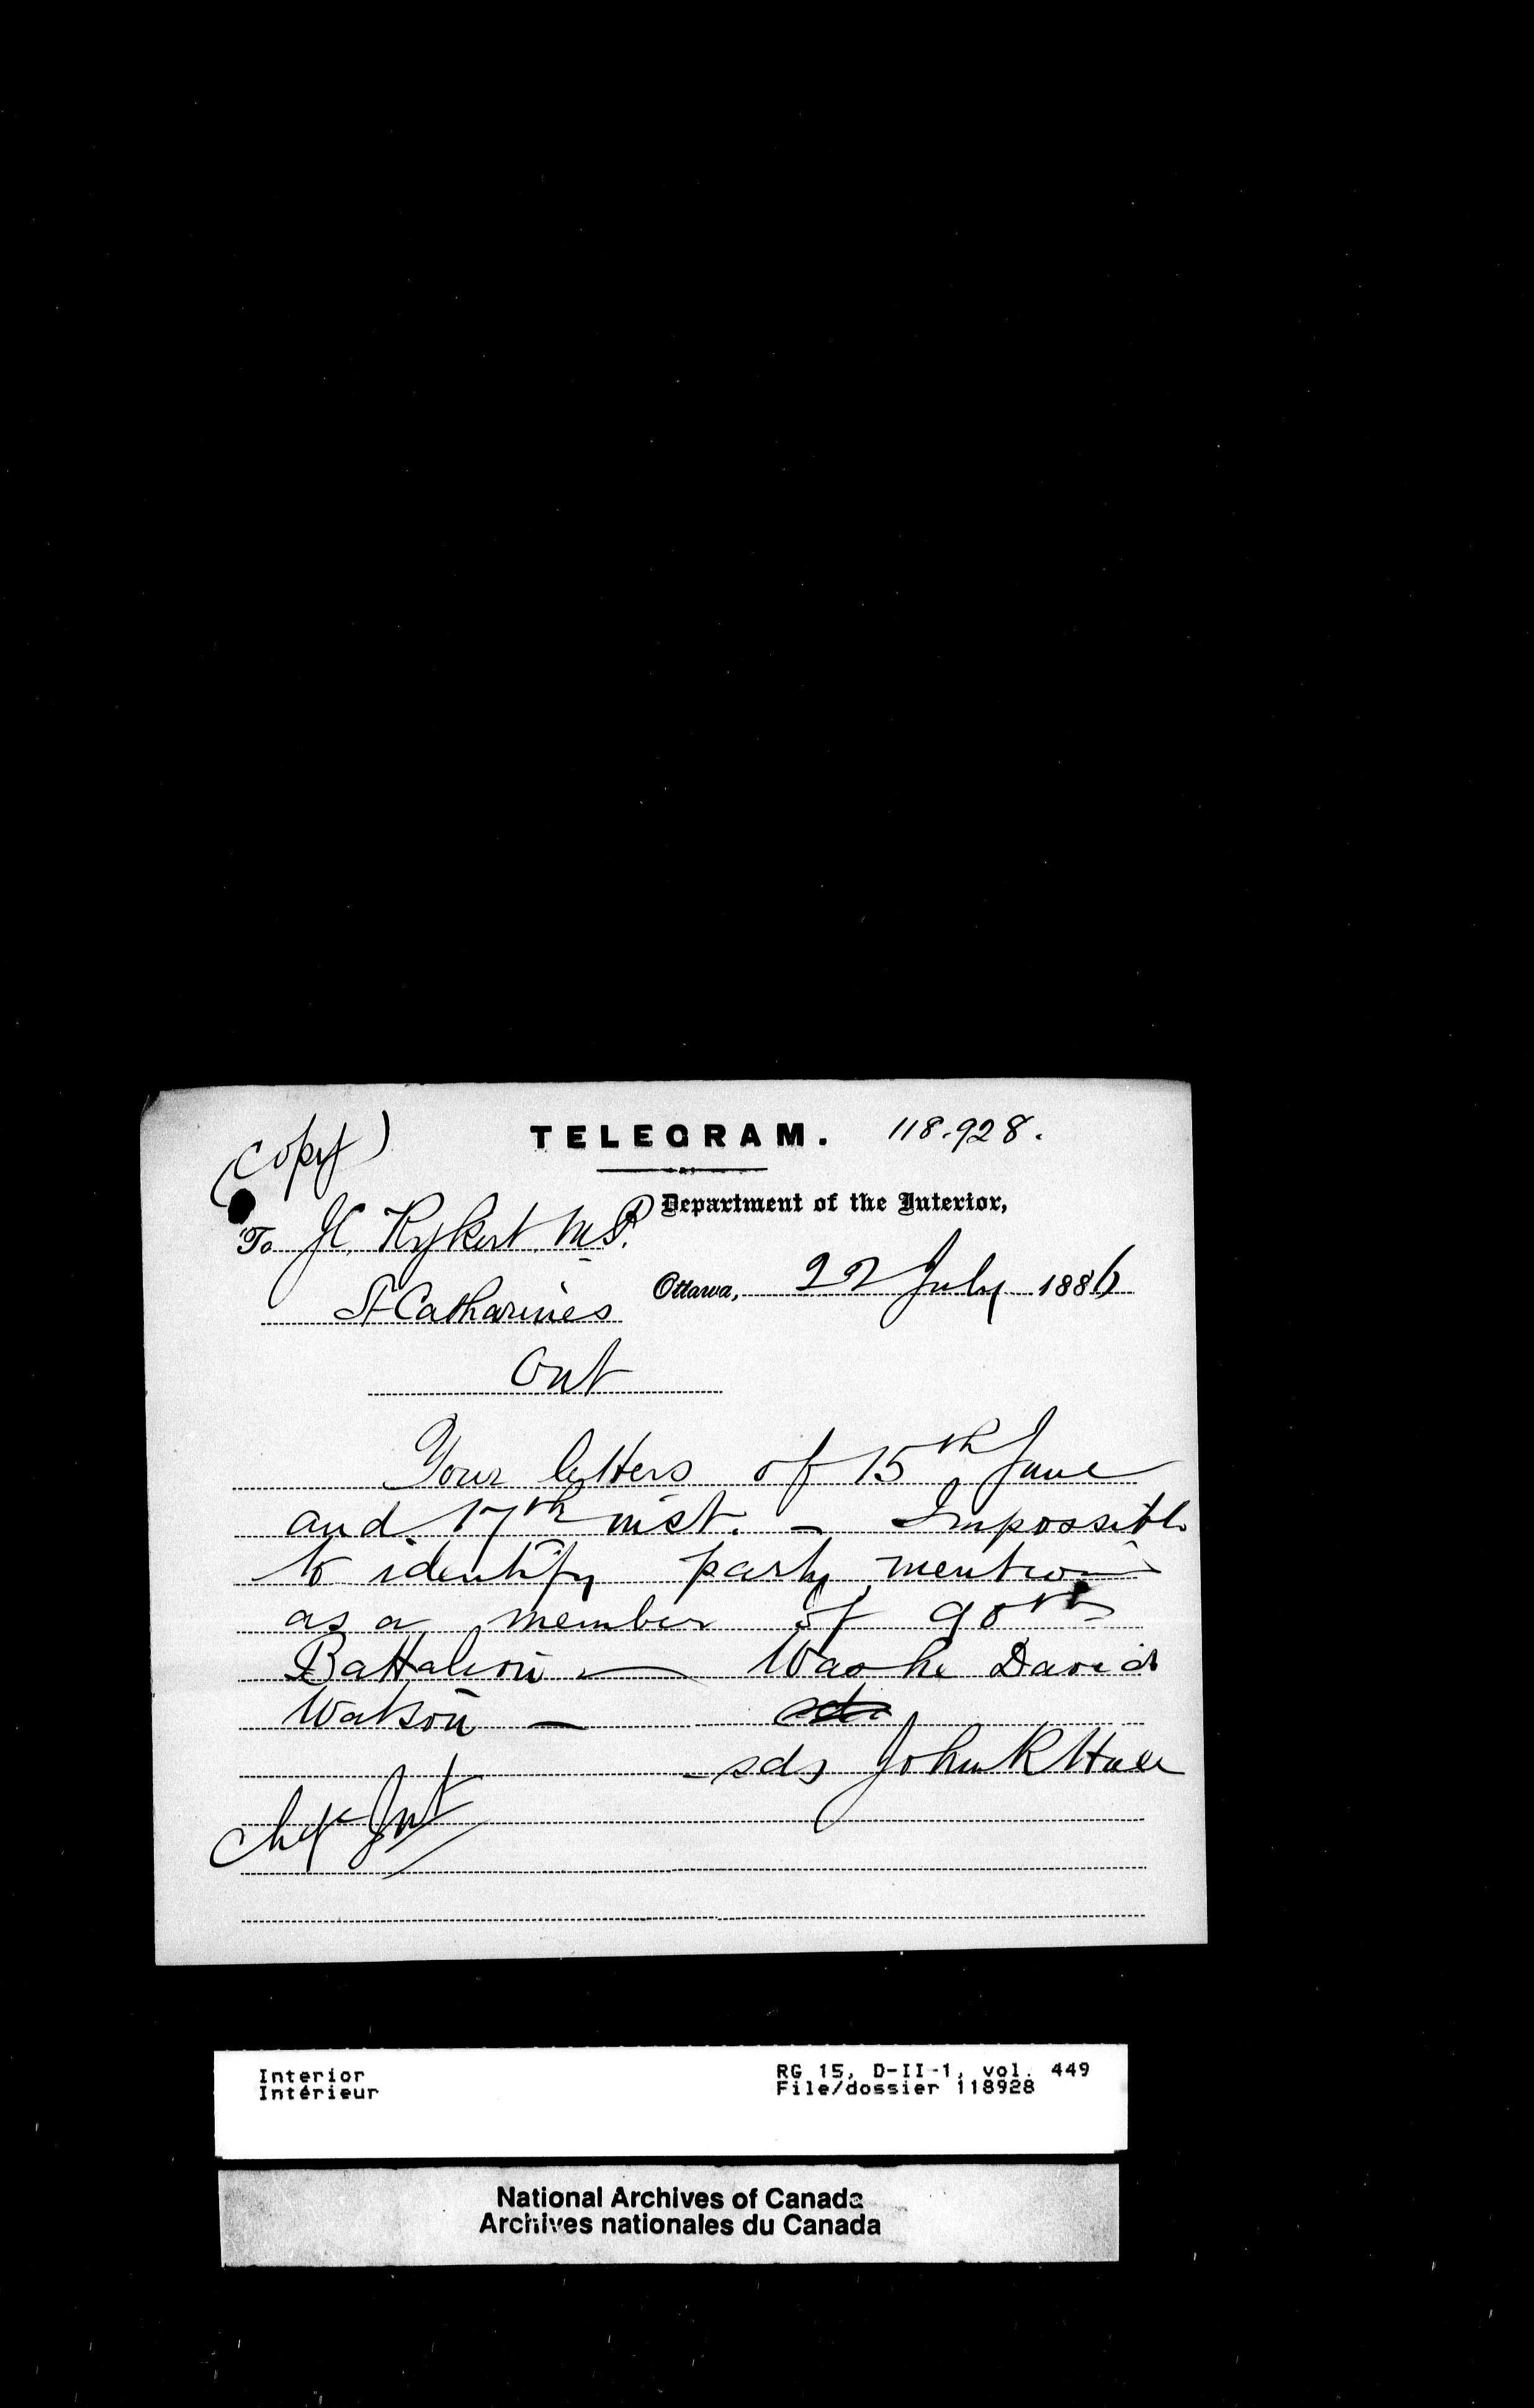 (Copy)
TELEGRAM. 118.928.
Department of the Interior,
To J.C. Rykert. M.P.
Ottawa, 22 July 1886
St Catharines
Ont
Your letters of 15th June
and 17th inst. – Impossible
to identify party mention
as a member of 90th
Battalion — Was he David
Watson —
sds John R Hall
Chge Int
Interior
Intérieur
RG 15, D-II-1, vol. 449
File/dossier 118928
National Archives of Canada
Archives nationales du Canada